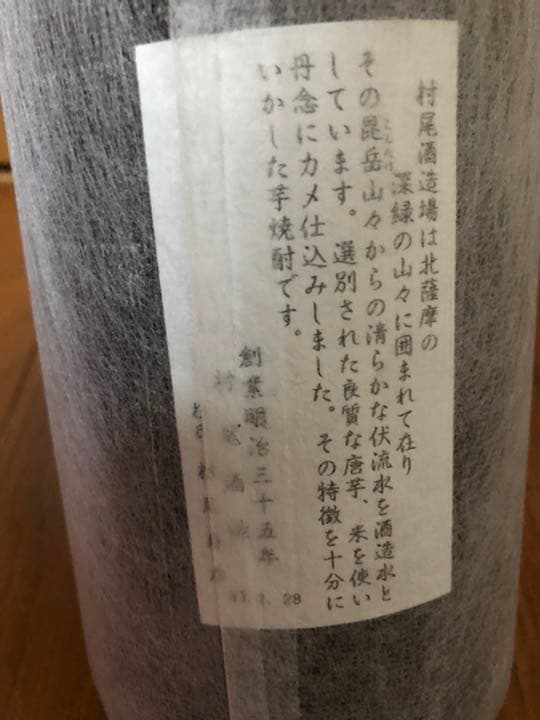 村尾酒造場は北薩摩の
深緑の山々に囲まれて在り
その昆岳山々からの清らかな伏流水を酒造水と
しています。選別された良質な唐芋、米を使い
丹念にカメ仕込みしました。その特徴を十分に
いかした芋焼酎です。
創業明治三十五年
村尾酒造
28